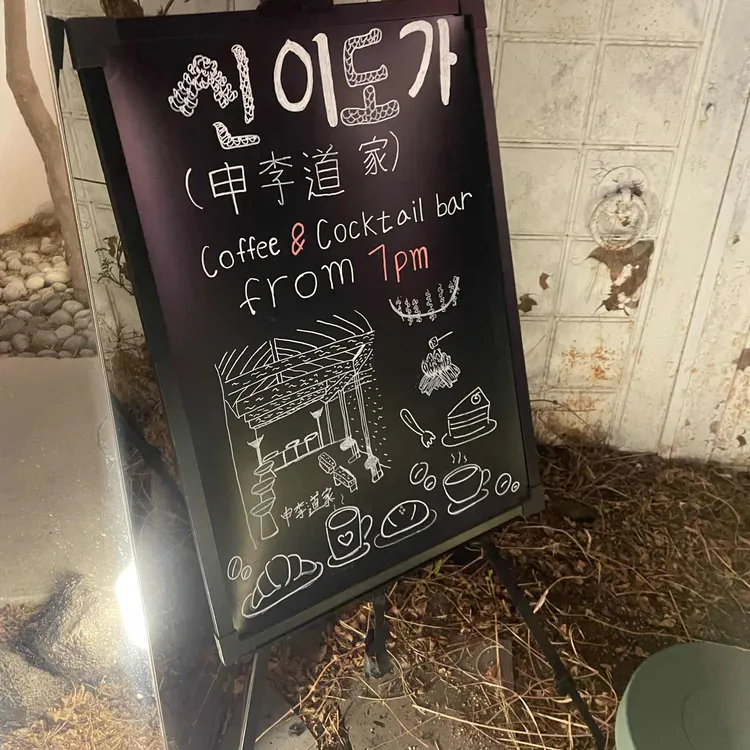 신이도가
(申李道家)
Coffee & Cocktail bar
from 7pm
申李道家